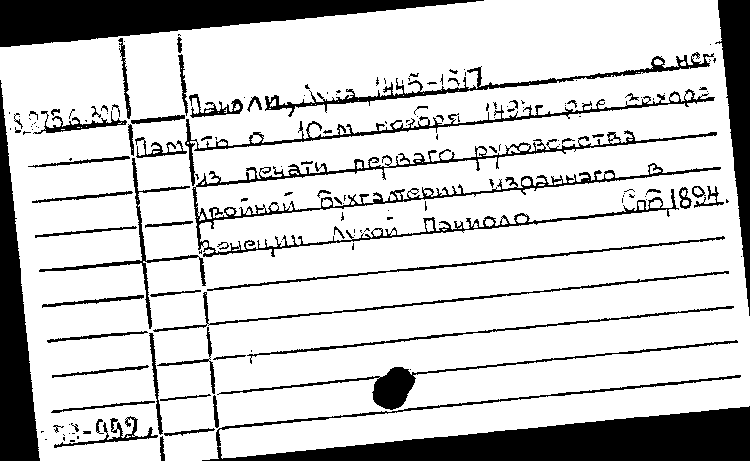 о нем
Пачоли, Лука, 1445-1517.
Память о 10-м ноября 1494г. дне выхода
из печати перваго руководства
двойной бухгалтерии, изданнаго в
Венеции Лукой Пачиоло. Спб, 1894.
53-992,